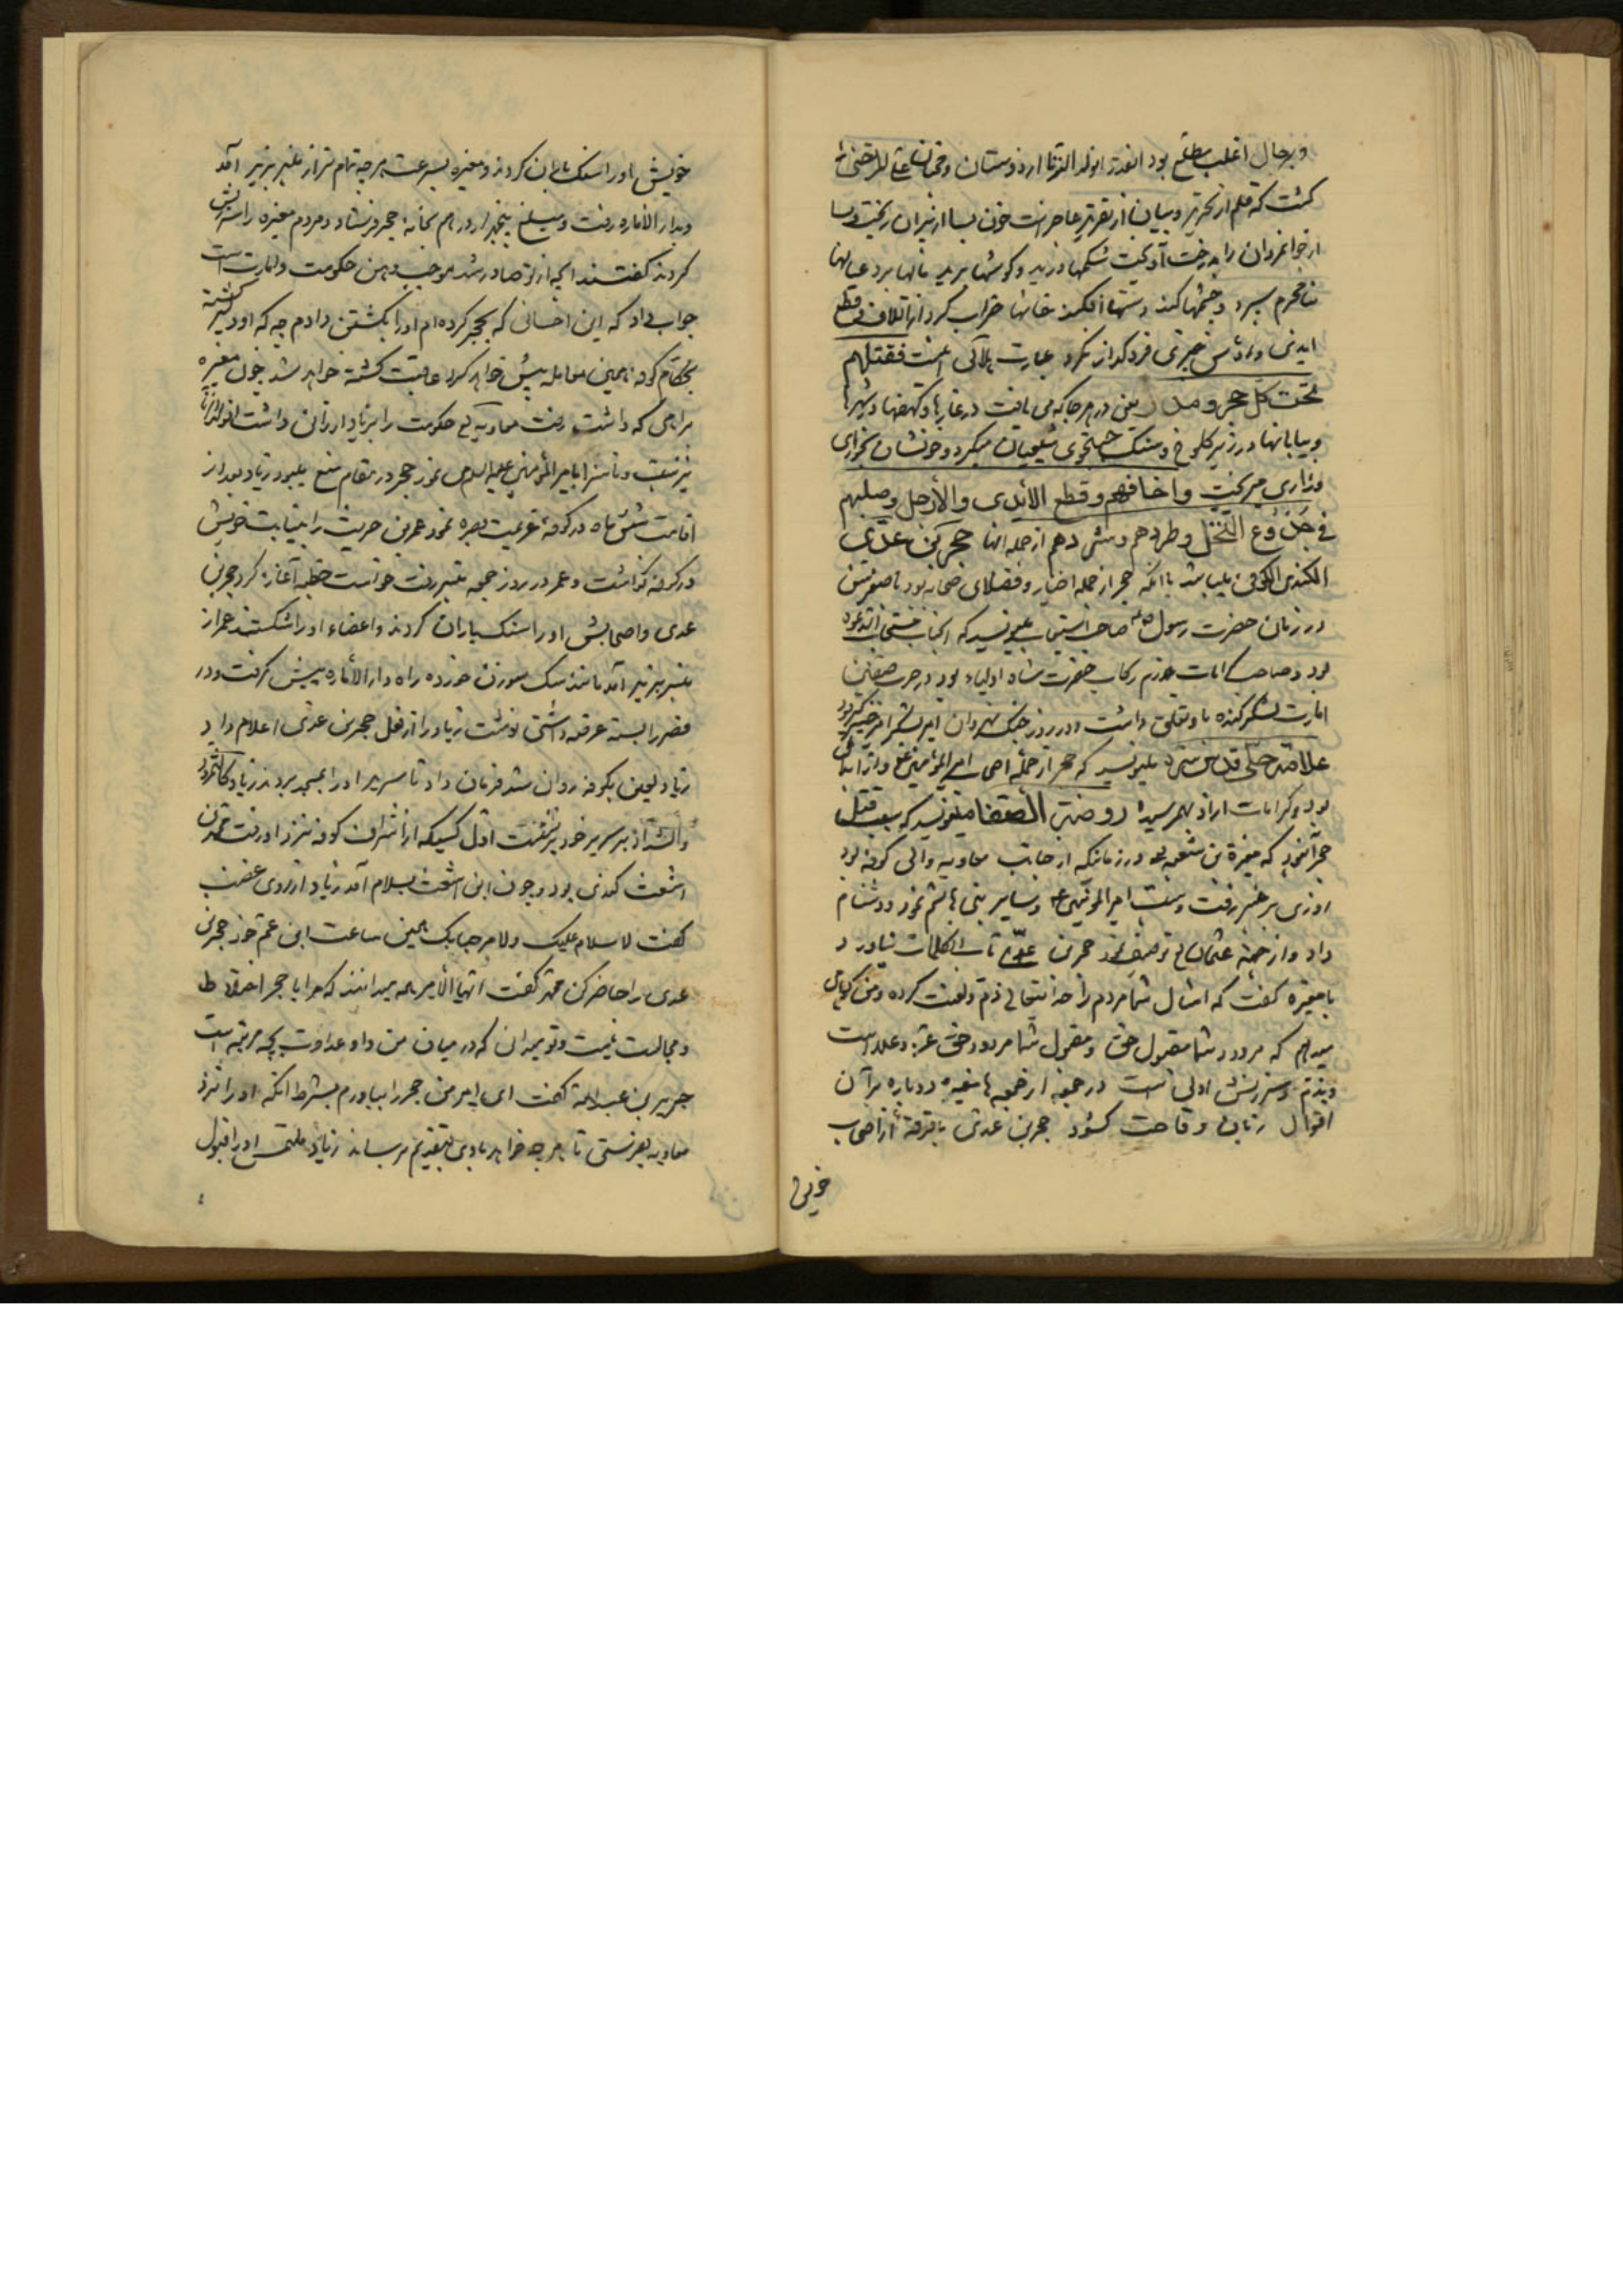 و برجال اغلب مطلع بود انقدر انولد الزنا از دوستان و محبان علی المرتضی را
کشت که قلم از تحریر و بیان از تقریر عاجز است خون بسا از پیران ریخت و بسا
از جوانمردان را بدرخت آویخت شکمها درید و گوشها برید مالها برد عیالها
بنامحرم سپرد و چشمها کند دستها افکند خانها خراب کرد
ایدی و فروگذار نکرد عبارت هلالی اینست فقتلهم
تحت کل حجر و مدر یعنی در هر جا که می یافت در غارها و کهفها و شهرها
و بیابانها در زیر کلوخ و سنک جستجوی شیعیان میکرد و خونشان بخواری
و زاری میریخت و اخافهم و قطع الایدی و الارجل و صلبهم
فی جذوع النخل و طردهم و شردهم از جمله انها حجر بن عدی
الکندی الکوفی میباشد با انکه حجر از جمله اخیار و فضلای صحابه بود با صغر سن
در زمان حضرت رسول ص صاحب استیعاب مینویسد که انجناب مستجاب الدعوه
بود و صاحب کرامات در رکاب حضرت شاه اولیاء بود در حرب صفین
امارت لشکر کنده باو تعلق داشت و در روز جنک نهروان امیر لشکر
علامه حلی قدس سره مینویسد که حجر از جمله اصحاب امیرالمؤمنین ع و از ابدال
بود و کرامات از او بهم رسید روضة الصفا مینویسد که سبب قتل
حجر آنبود که مغیرة بن شعبه در زمانیکه از جانب معاویه والی کوفه بود
روزی بر منبر رفت و سب امیرالمؤمنین ع و سایر بنی هاشم نمود و دشنام
داد و از جهة عثمان توصیف نمود حجر بن عدی تاب انکلمات نیاورد
با مغیره گفت که امثال شما مردم را خدایتعالی ذم و لعنت کرده و من گواهی
میدهم که مردود شما مقبول حق و مقبول شما مردود حق عز و علا است
و بذم و سرزنش اولی است در جمعه از جمعه ها مغیره دوباره بر آن
اقوال زبان وقاحت کشود حجر بن عدی با فرقه از اصحاب
خویش
خویش او را سنک باران کردند و مغیره بسرعت هر چه تمامتر از منبر بزیر آمد
و بدار الاماره رفت و مبلغ پنجهزار درهم بخانه حجر فرستاد و مردم مغیره را سرزنش
کردند گفتند انچه از تو صادر شد موجب وهن حکومت و امارت است
جواب داد که این احسانی که بحجر کرده ام او را بکشتن دادم چه که او دیگر
بحکام کوفه همین معامله پیش خواهد کرد و عاقبت کشته خواهد شد چون مغیره
براهی که داشت رفت معاویه حکومت را بزیاد ارزانی داشت انولد الزنا
نیز نسبت ناسزا بامیرالمؤمنین علیه السلام نمود حجر در مقام منع میبود زیاد بعد از
اقامت شش ماه در کوفه عزیمت بصره نمود عمر بن حریث را بنیابت خویش
در کوفه گذاشت و عمر در روز جمعه بمنبر رفت خواست خطبه آغاز کرد حجر بن
عدی و اصحابش او را سنک باران کردند و اعضاء او را شکستند عمر از
منبر بزیر آمد مانند سک سوزن خورده راه دار الاماره پیش گرفت و در
قصر را بسته عرضه داشتی نوشت زیاد را از فعل حجر بن عدی اعلام داد
زیاد لعین بکوفه روان شد فرمان داد تا سریر او را بمسجد بردند زیاد
بر سریر خود بنشست اول کسیکه از اشراف کوفه نزد او رفت محمد بن
اشعث کندی بود و چون ابن اشعث بسلام آمد زیاد از روی غضب
گفت لا سلام علیک و لا مرحبا بک همین ساعت ابن عم خود حجر بن
عدی را حاضر کن محمد گفت ایها الامیر همه میدانند که مرا با حجر اختلاط
و مجالست نیست و تو میدانی که در میان من و او عداوت بچه مرتبه است
جریر بن عبدالله گفت ای امیر من حجر را بیاورم بشرط انکه او را نزد
معاویه بفرستی تا هر چه خواهد با وی بتقدیم رساند زیاد ملتمس او را قبول